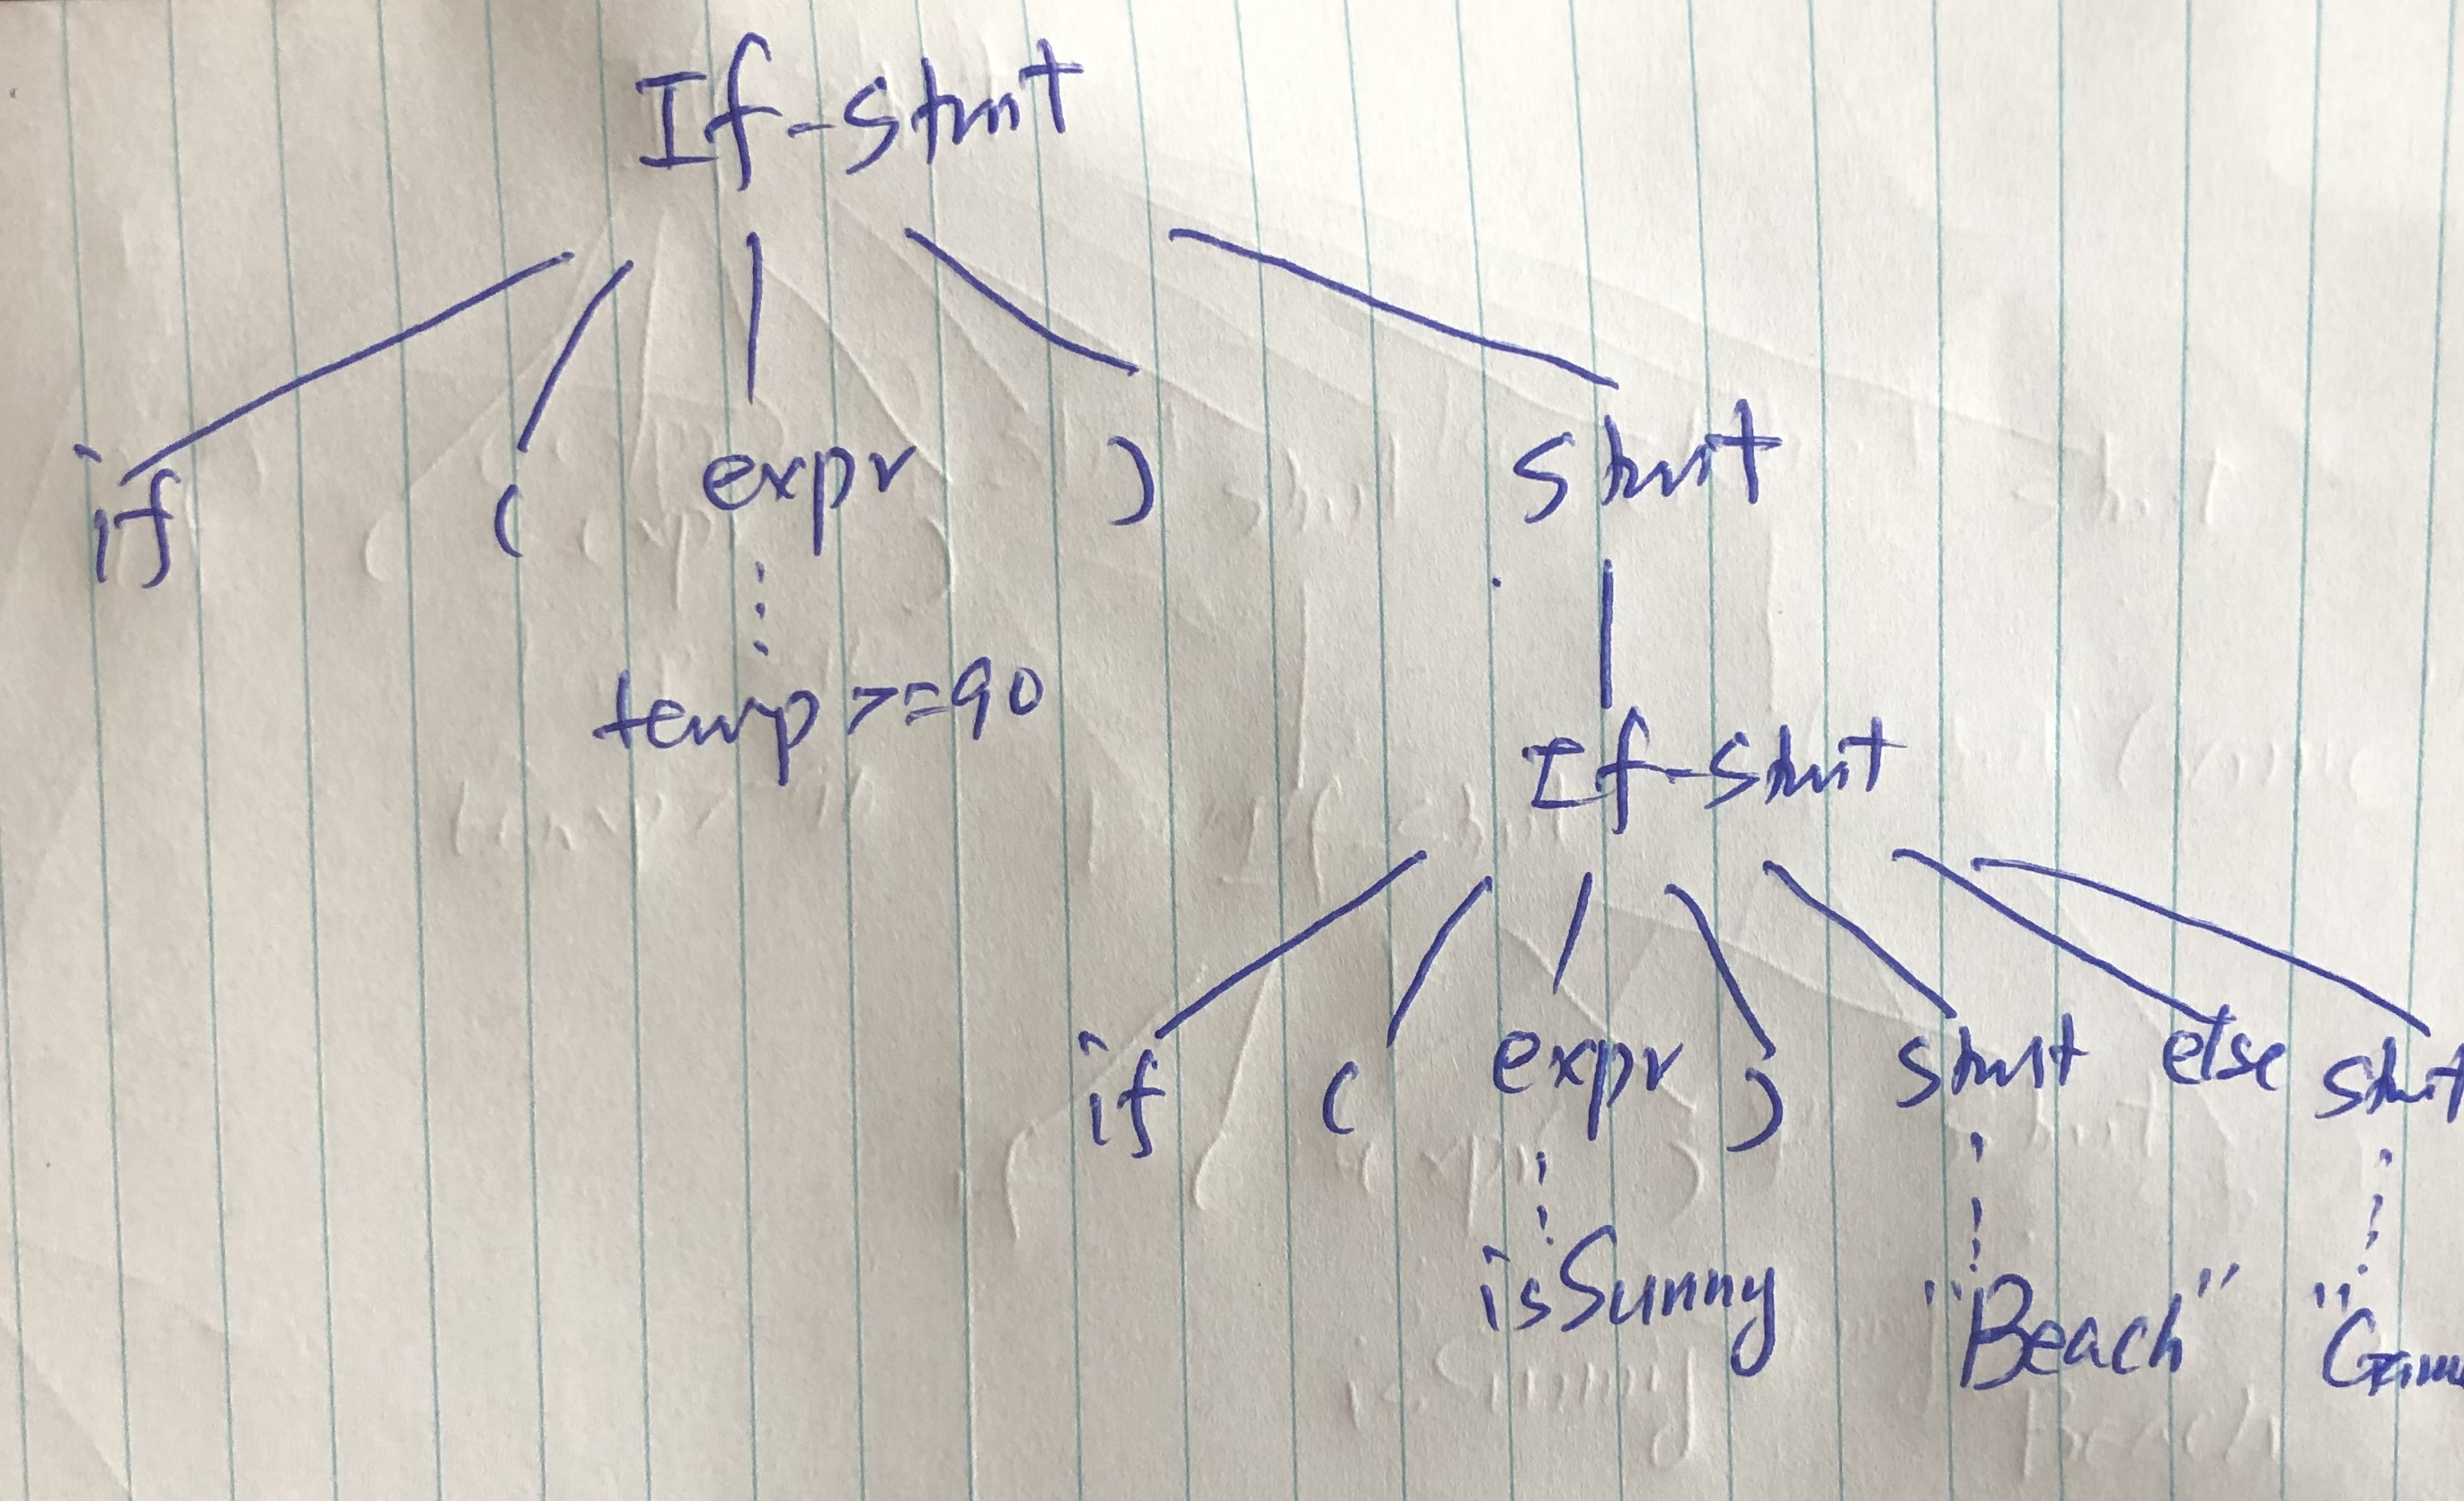 If-stmt
if ( expr ) stmt
temp >=90
If-stmt
if ( expr ) stmt else stmt
isSunny "Beach" "Gam